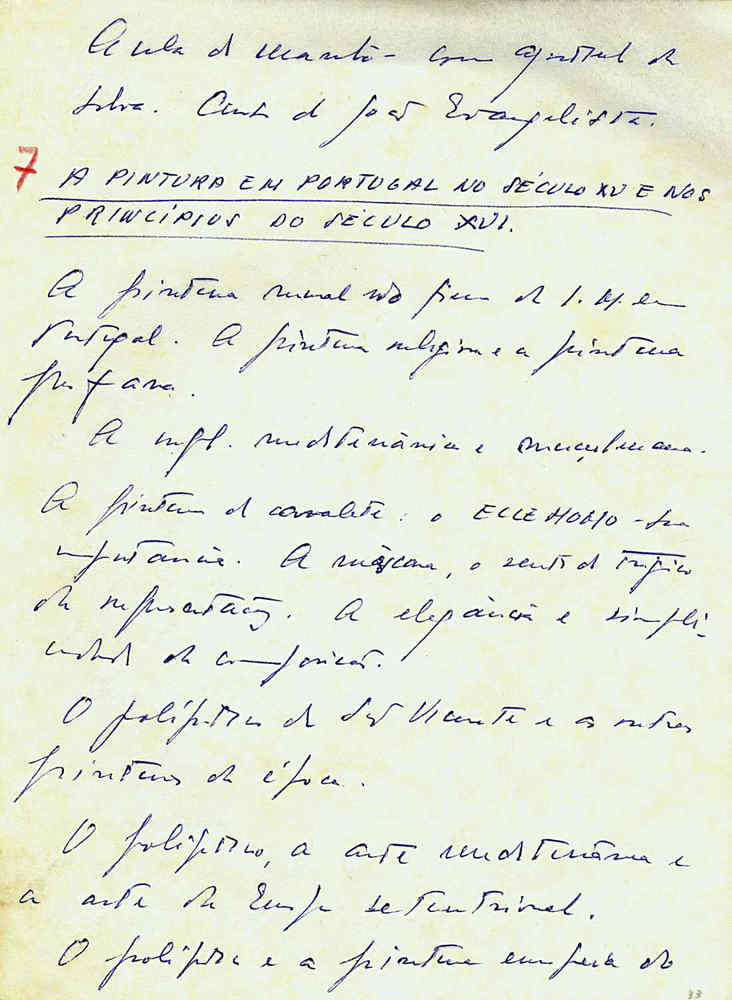 Aula de manhã - com Agostinho da
Silva. Conto de João Evangelista.
7 A PINTURA EM PORTUGAL NO SÉCULO XV E NOS
PRINCÍPIOS DO SÉCULO XVI.
A pintura mural no fim da I. M. em
Portugal. A pintura religiosa e a pintura
profana.
A infl. mediterrânica e muçulmana.
A pintura de cavalete: o ECCE HOMO - sua
importância. A máscara, o sentido trágico
da representação. A elegância e simpli-
cidade da composição.
O políptico de São Vicente e as outras
pinturas da época.
O políptico, a arte mediterrânica e
a arte da Europa setentrional.
O políptico e a pintura europeia do
33